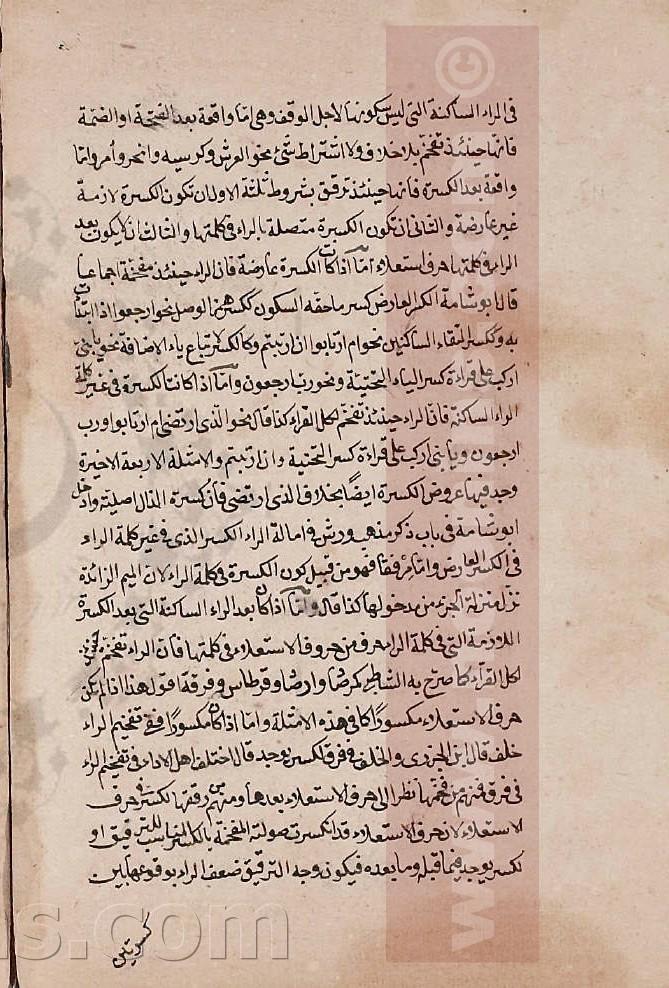 في الراء الساكنة التي ليس سكونها لاجل الوقف وهي اما واقعة بعد الفتحة او الضمة
فانها حينئذ تفخم بلا خلاف ولا اشتراط شئ نحو العرش وكرسيه وانحر وأمر واما
واقعة بعد الكسرة فانها حينئذ ترقق بشروط ثلثة الاول ان تكون الكسرة لازمة
غير عارضة والثاني ان تكون الكسرة متصلة بالراء في كلمتها والثالث ان لا يكون بعد
الراء في كلمتها حرف استعلاء اما اذا كانت الكسرة عارضة فان الراء حينئذ مفخمة اجماعا
قال ابو شامة الكسر العارض كسر ما حقه السكون ككسر همزة الوصل نحو ارجعوا اذا ابتدأت
به وككسر التقاء الساكنين نحو ام ارتابوا ان ارتبتم وكالكسر لاتباع ياء الاضافة نحو يا بني
اركب على قراءة كسر الياء التحتية ونحو رب ارجعون واما اذا كانت الكسرة في غير كلمة
الراء الساكنة فان الراء حينئذ تفخم لكل القراء كذا قال نحو الذي ارتضى ام ارتابوا ورب
ارجعون ويا بني اركب على قراءة كسر التحتية وان ارتبتم والامثلة الاربعة الاخيرة
وجد فيها عروض الكسرة ايضا بخلاف الذي ارتضى فان كسرة الذال اصلية وادخل
ابو شامة في باب ذكر مذهب ورش في امالة الراء الكسر الذي في غير كلمة الراء
في الكسر العارض واما مرفقا فهو من قبيل كون الكسرة في كلمة الراء لان الميم الزائدة
نزل منزلة الجزء من مدخولها كذا قال واما اذا كان بعد الراء الساكنة التي بعد الكسرة
اللازمة التي في كلمة الراء حرف من حروف الاستعلاء في كلمتها فان الراء تفخم حينئذ
لكل القراء كما صرح به الشاطبي كمرصادا وارصادا وقرطاس وفرقة اقول هذا اذا لم يكن
حرف الاستعلاء مكسورا كما في هذه الامثلة واما اذا كان مكسورا ففي تفخيم الراء
خلف قال ابن الجزري والخلف في فرق لكسر يوجد قال اختلف اهل الاداء في تفخيم الراء
في فرق فمنهم من فخمها نظرا الى حرف الاستعلاء بعدها ومنهم من رققها لكسر في حرف
الاستعلاء لان حرف الاستعلاء قد انكسرت صولته المفخمة بالكسر المناسب للترقيق او
لكسر يوجد فيما قبله وما بعده فيكون وجه الترقيق ضعف الراء بوقوعها بين
كسرتين